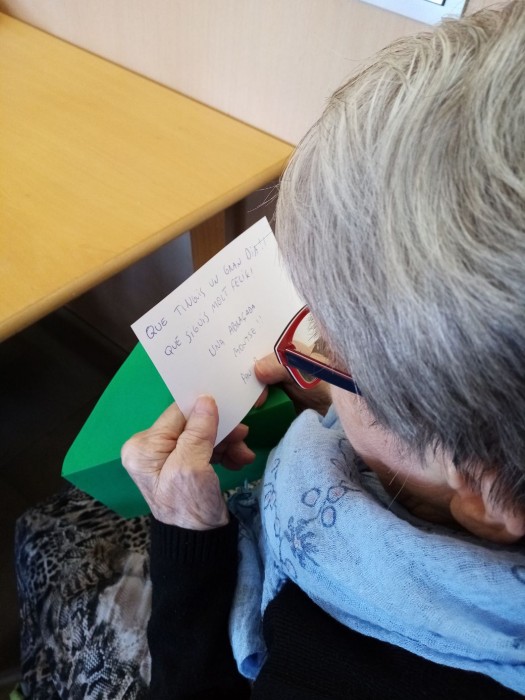 QUE TINGIS UN GRAN DIA!!
QUE SIGUIS MOLT FELIÇ!
UNA ABRAÇADA